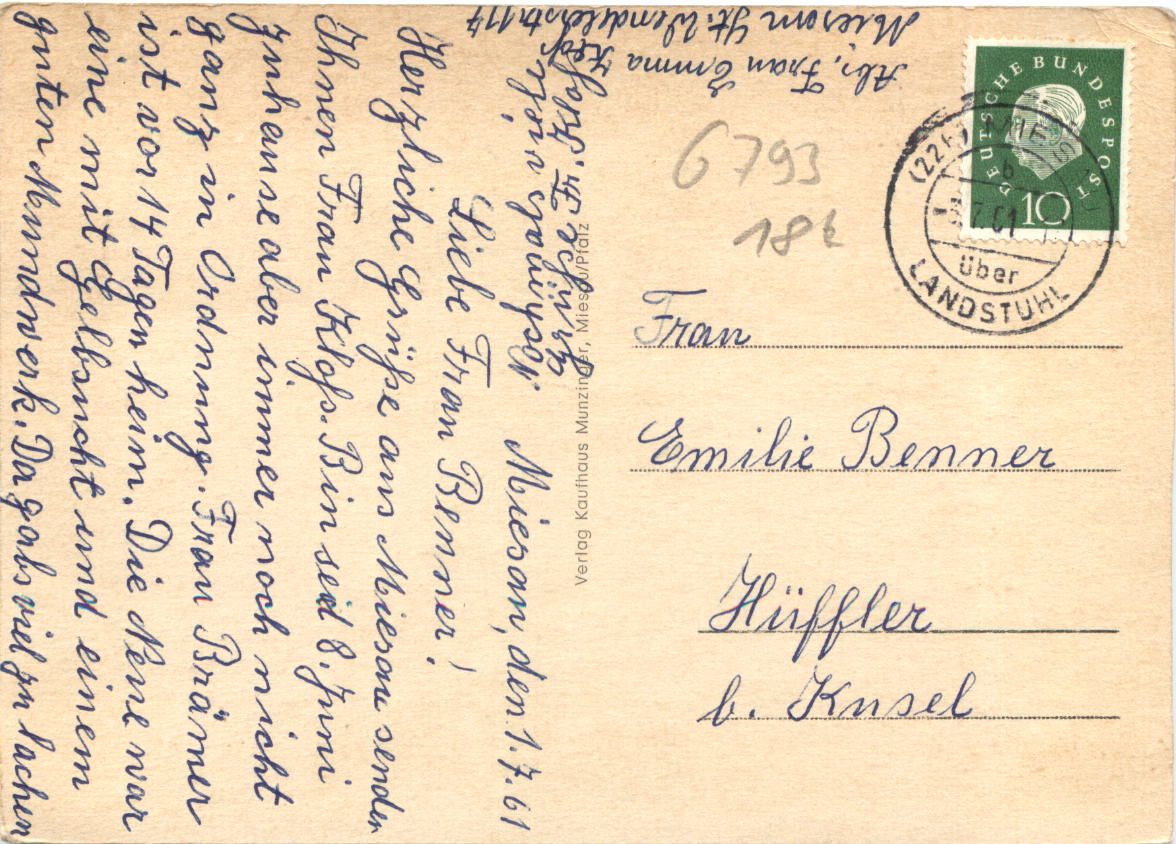 Miesau, den 1.7.61
Liebe Frau Benner!
Herzliche Grüße aus Miesau sendet
Ihnen Frau Kloß. Bin seit 8. Juni
zuhause aber immer noch nicht
ganz in Ordnung. Frau Brämer
ist vor 14 Tagen heim. Die Neue war
eine mit Gelbsucht und einem
guten Mundwerk. Da gabs viel zu lachen
Abs, Frau Emma Kloß
Miesau St. Wendelerstr. 117
Verlag Kaufhaus Munzinger, Miesau/Pfalz
6793
18
DEUTSCHE BUNDESPOST
10
(22b) MIESAU
b
7.61
über
LANDSTUHL
Frau
Emilie Benner
Hüffler
b. Kusel